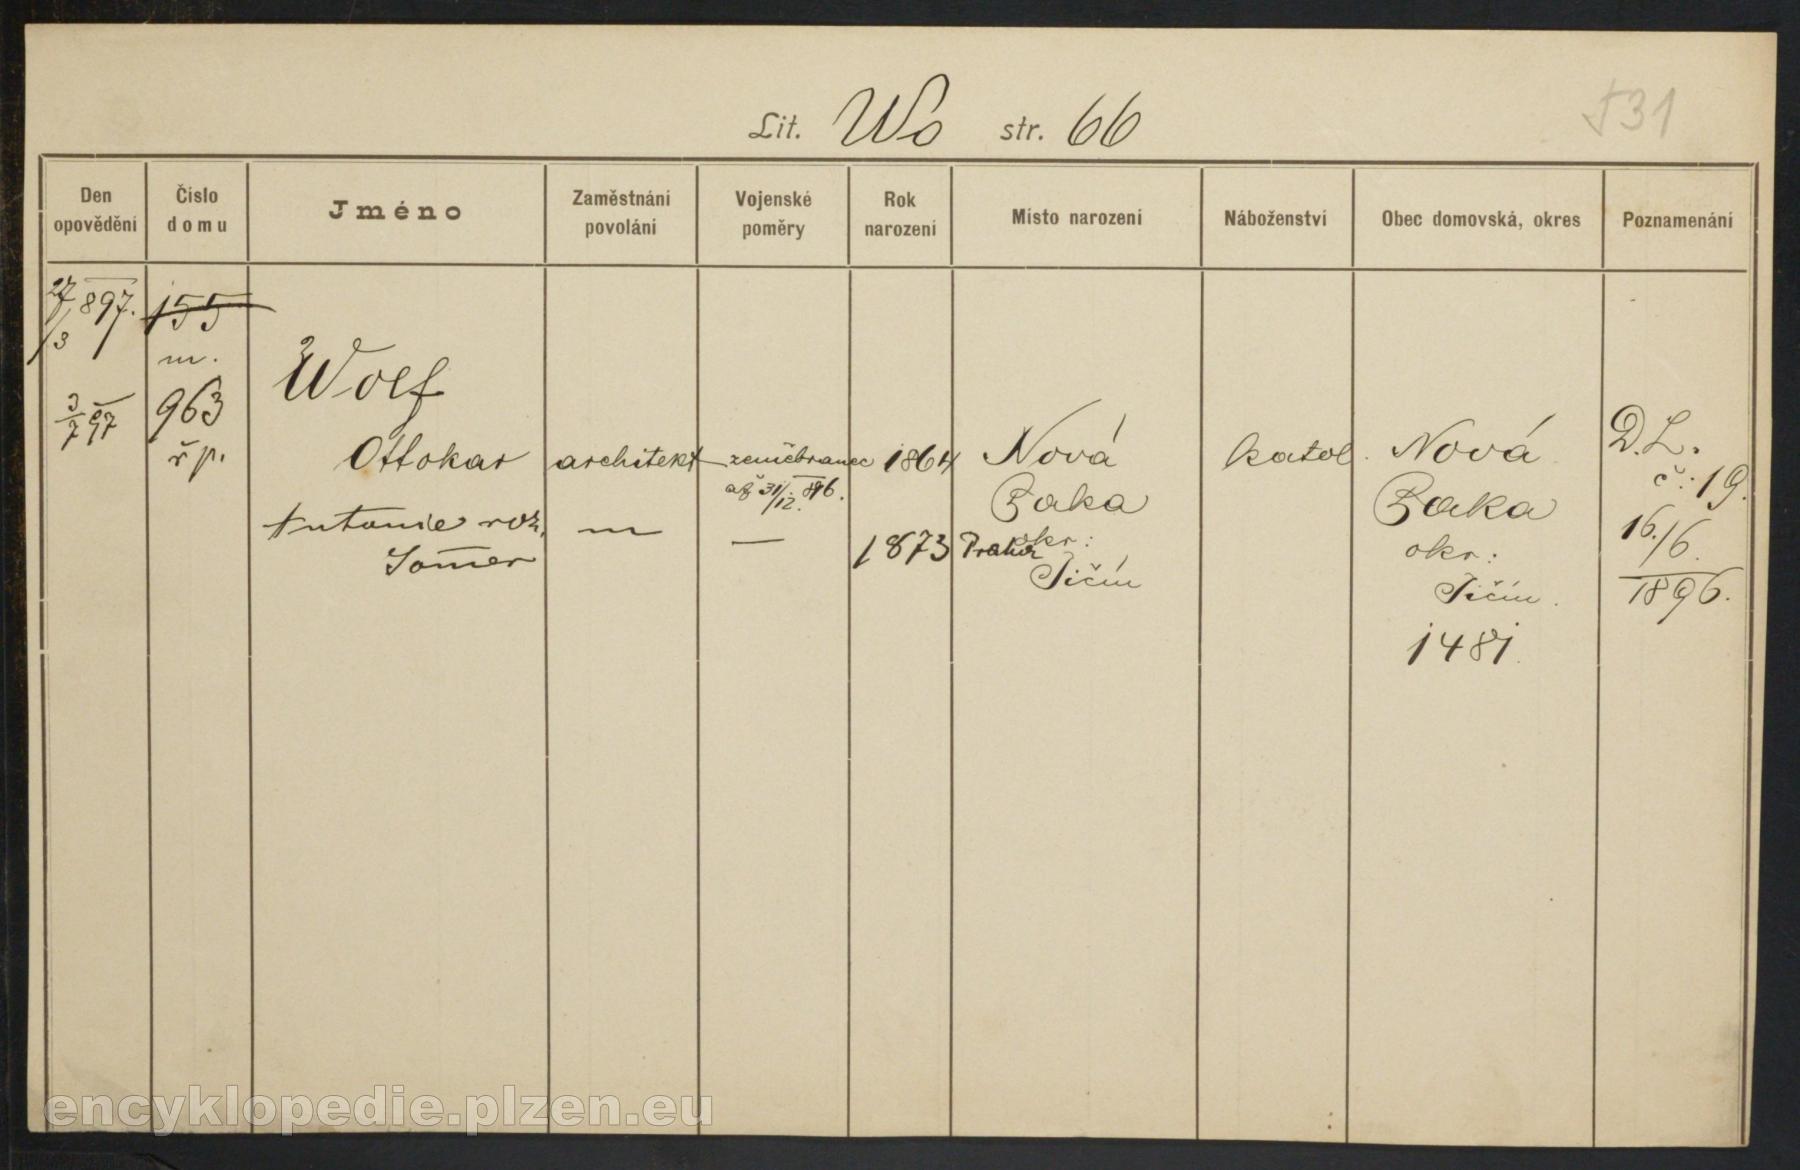 Lit. Wo str. 66
531
Den opovědění
Číslo domu
Jméno
Zaměstnání povolání
Vojenské poměry
Rok narození
Místo narození
Náboženství
Obec domovská, okres
Poznamenání
27/3 897.
155
m.
3/7 97
963
ř p.
Wolf
Ottokar
architekt
zeměbranec
až 31/12. 896.
1864
Nová
Paka
okr:
Jičín
katol.
Nová
Paka
okr:
Jičín.
1481.
D.L.
č: 19.
16./6.
1896.
Antonie roz.
Somer
—
—
1873
Praha
encyklopedie.plzen.eu